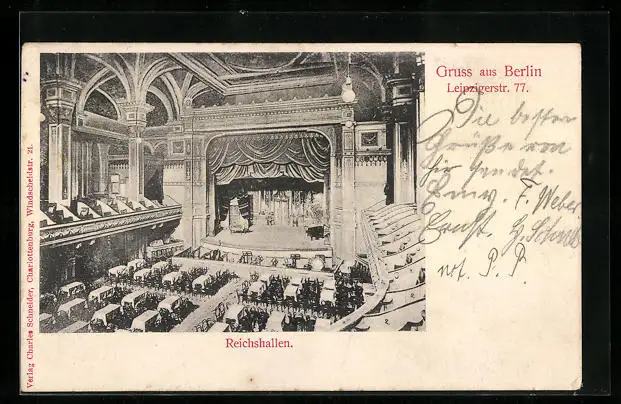 Gruss aus Berlin
Leipzigerstr. 77.
Die besten
Grüße von
hier sendet.
F. Weber
Ernst.
P. P.
Reichshallen.
Verlag Charles Schneider, Charlottenburg, Windscheidstr. 21.